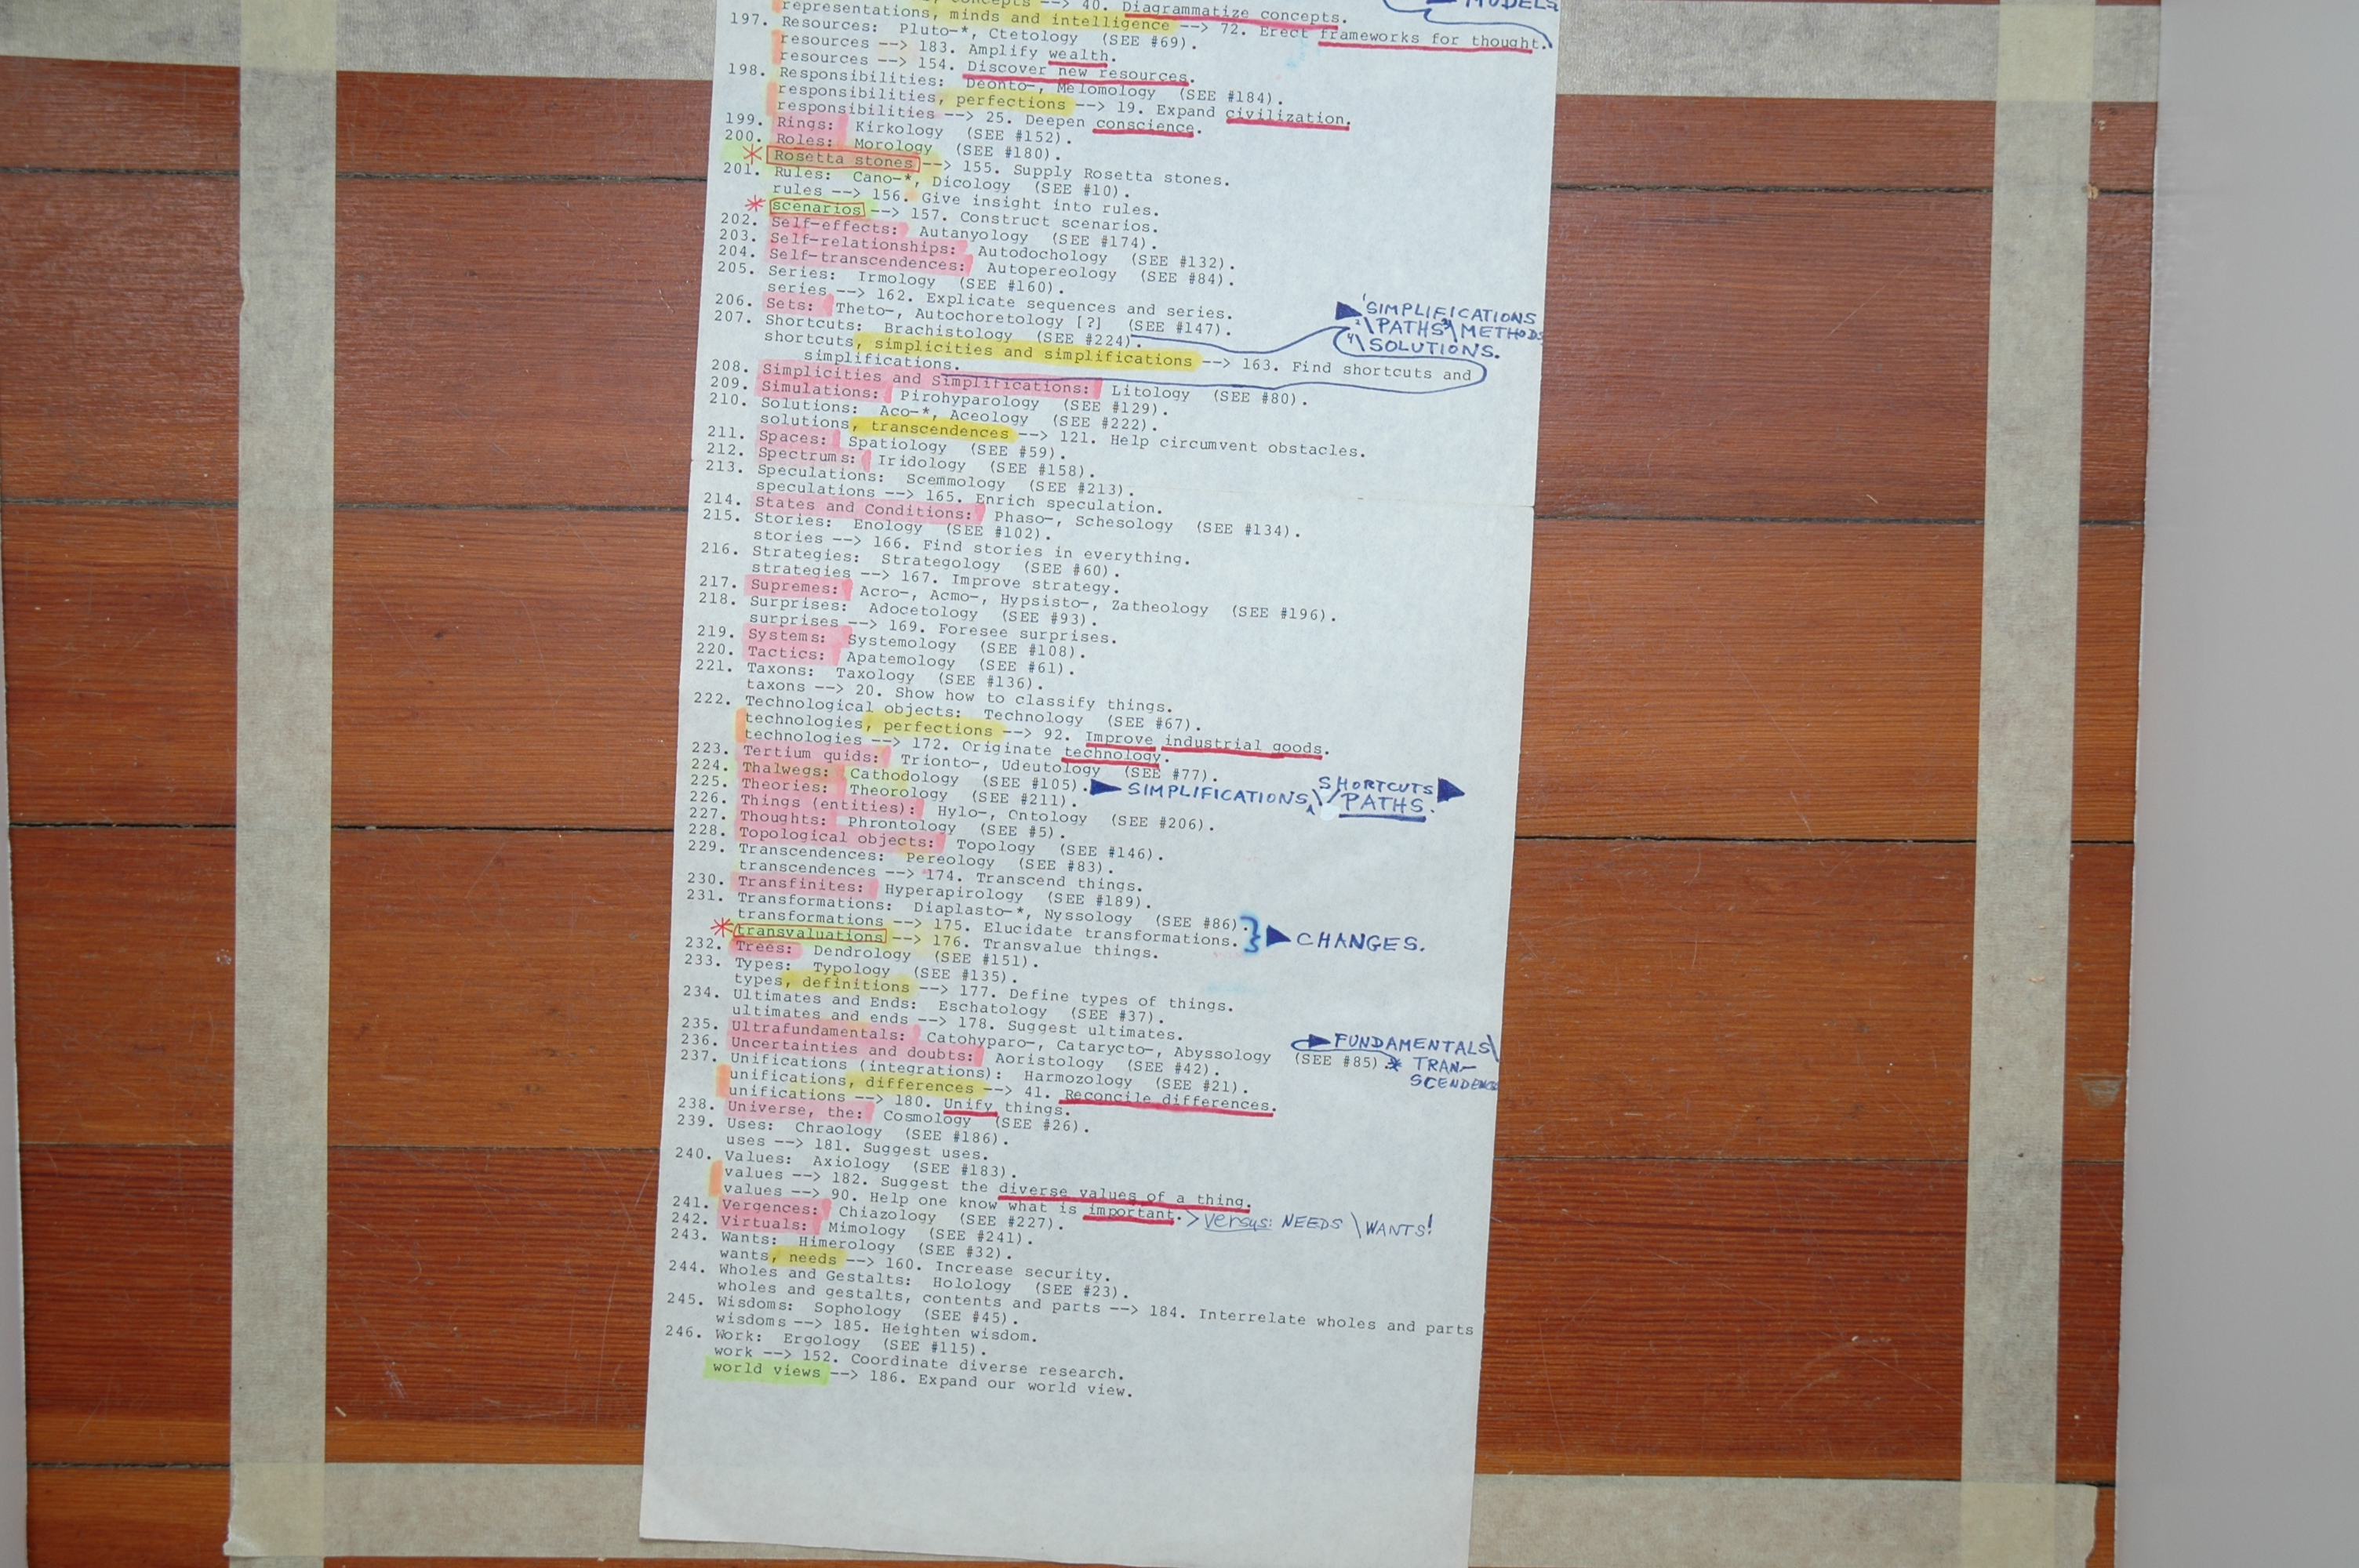 concepts --> 40. Diagrammatize concepts.
MODELS
representations, minds and intelligence --> 72. Erect frameworks for thought.
197. Resources: Pluto-*, Ctetology (SEE #69).
resources --> 183. Amplify wealth.
resources --> 154. Discover new resources.
198. Responsibilities: Deonto-, Melomology (SEE #184).
responsibilities, perfections --> 19. Expand civilization.
responsibilities --> 25. Deepen conscience.
199. Rings: Kirkology (SEE #152).
200. Roles: Morology (SEE #180).
* Rosetta stones --> 155. Supply Rosetta stones.
201. Rules: Cano-*, Dicology (SEE #10).
rules --> 156. Give insight into rules.
* scenarios --> 157. Construct scenarios.
202. Self-effects: Autanyology (SEE #174).
203. Self-relationships: Autodochology (SEE #132).
204. Self-transcendences: Autopereology (SEE #84).
205. Series: Irmology (SEE #160).
series --> 162. Explicate sequences and series.
206. Sets: Theto-, Autochoretology [?] (SEE #147).
207. Shortcuts: Brachistology (SEE #224).
shortcuts, simplicities and simplifications --> 163. Find shortcuts and
simplifications.
▶ 'SIMPLIFICATIONS
2\PATHS 3\METHODS
4\SOLUTIONS.
208. Simplicities and Simplifications: Litology (SEE #80).
209. Simulations: Pirohyparology (SEE #129).
210. Solutions: Aco-*, Aceology (SEE #222).
solutions, transcendences --> 121. Help circumvent obstacles.
211. Spaces: Spatiology (SEE #59).
212. Spectrums: Iridology (SEE #158).
213. Speculations: Scemmology (SEE #213).
speculations --> 165. Enrich speculation.
214. States and Conditions: Phaso-, Schesology (SEE #134).
215. Stories: Enology (SEE #102).
stories --> 166. Find stories in everything.
216. Strategies: Strategology (SEE #60).
strategies --> 167. Improve strategy.
217. Supremes: Acro-, Acmo-, Hypsisto-, Zatheology (SEE #196).
218. Surprises: Adocetology (SEE #93).
surprises --> 169. Foresee surprises.
219. Systems: Systemology (SEE #108).
220. Tactics: Apatemology (SEE #61).
221. Taxons: Taxology (SEE #136).
taxons --> 20. Show how to classify things.
222. Technological objects: Technology (SEE #67).
technologies, perfections --> 92. Improve industrial goods.
technologies --> 172. Originate technology.
223. Tertium quids: Trionto-, Udeutology (SEE #77).
224. Thalwegs: Cathodology (SEE #105). ▶ SIMPLIFICATIONS \/ SHORTCUTS ▶
PATHS.
225. Theories: Theorology (SEE #211).
226. Things (entities): Hylo-, Ontology (SEE #206).
227. Thoughts: Phrontology (SEE #5).
228. Topological objects: Topology (SEE #146).
229. Transcendences: Pereology (SEE #83).
transcendences --> 174. Transcend things.
230. Transfinites: Hyperapirology (SEE #189).
231. Transformations: Diaplasto-*, Nyssology (SEE #86).
transformations --> 175. Elucidate transformations.
* transvaluations --> 176. Transvalue things.
} ▶ CHANGES.
232. Trees: Dendrology (SEE #151).
233. Types: Typology (SEE #135).
types, definitions --> 177. Define types of things.
234. Ultimates and Ends: Eschatology (SEE #37).
ultimates and ends --> 178. Suggest ultimates.
235. Ultrafundamentals: Catohyparo-, Catarycto-, Abyssology (SEE #85).
▶ FUNDAMENTALS\
* TRAN-
SCENDENCE
236. Uncertainties and doubts: Aoristology (SEE #42).
237. Unifications (integrations): Harmozology (SEE #21).
unifications, differences --> 41. Reconcile differences.
unifications --> 180. Unify things.
238. Universe, the: Cosmology (SEE #26).
239. Uses: Chraology (SEE #186).
uses --> 181. Suggest uses.
240. Values: Axiology (SEE #183).
values --> 182. Suggest the diverse values of a thing.
values --> 90. Help one know what is important. > Versus: NEEDS \ WANTS!
241. Vergences: Chiazology (SEE #227).
242. Virtuals: Mimology (SEE #241).
243. Wants: Himerology (SEE #32).
wants, needs --> 160. Increase security.
244. Wholes and Gestalts: Holology (SEE #23).
wholes and gestalts, contents and parts --> 184. Interrelate wholes and parts
245. Wisdoms: Sophology (SEE #45).
wisdoms --> 185. Heighten wisdom.
246. Work: Ergology (SEE #115).
work --> 152. Coordinate diverse research.
world views --> 186. Expand our world view.